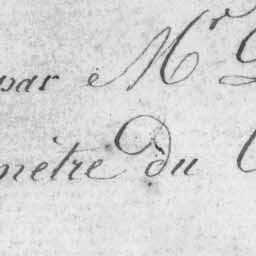 par Mr
mètre du